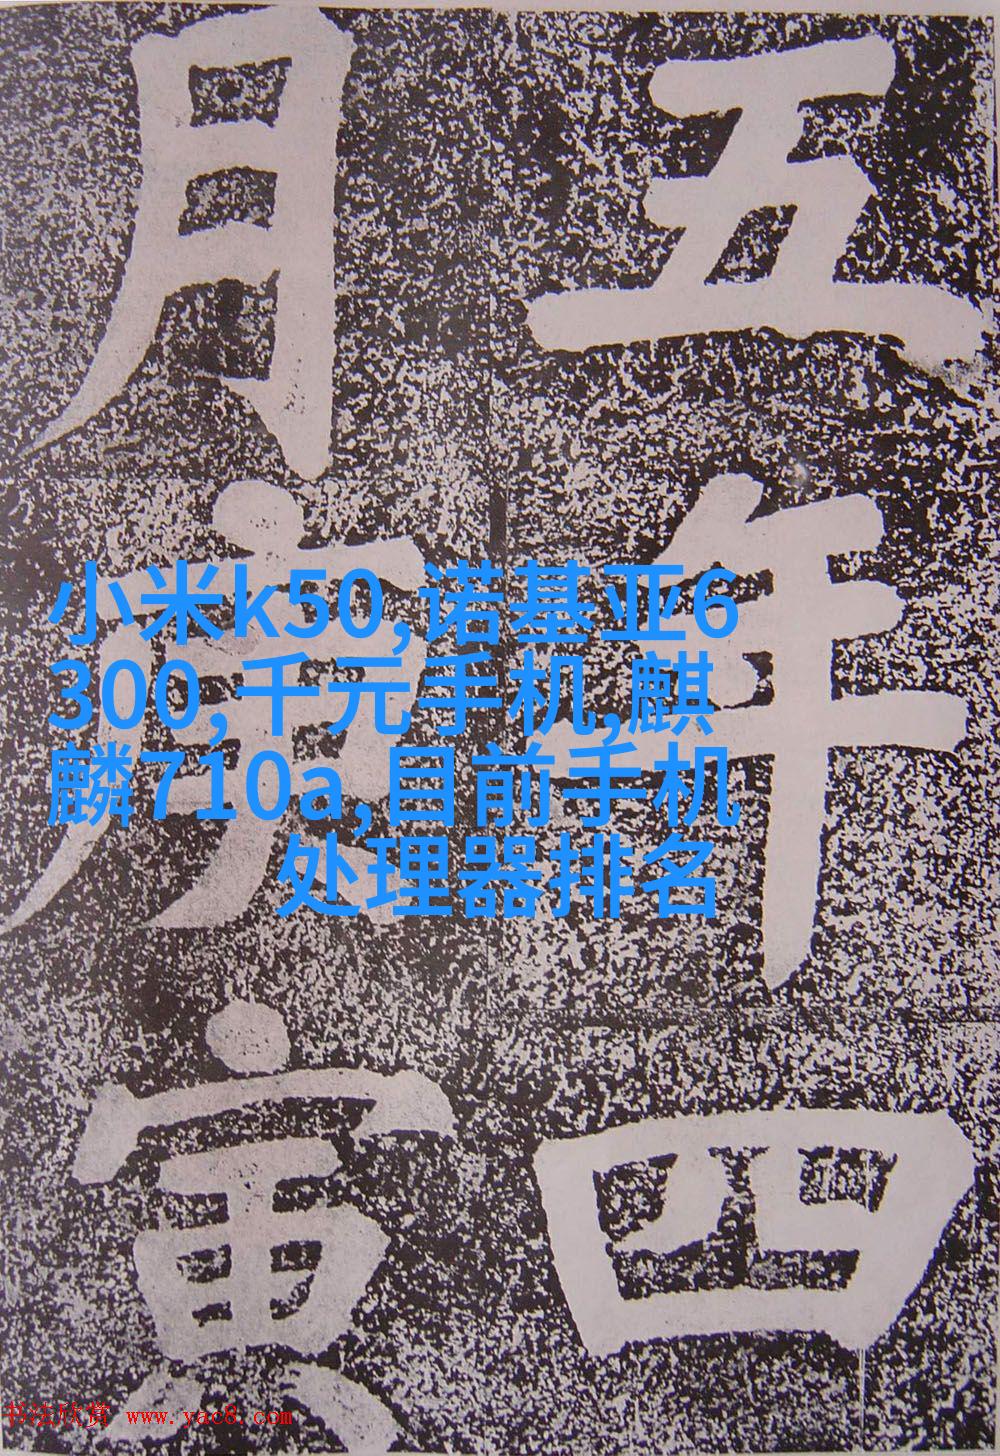 五年四
月庚寅
小米k50,诺基亚6
300,千元手机,麒
麟710a,目前手机
处理器排名
书法欣赏 www.yac8.com